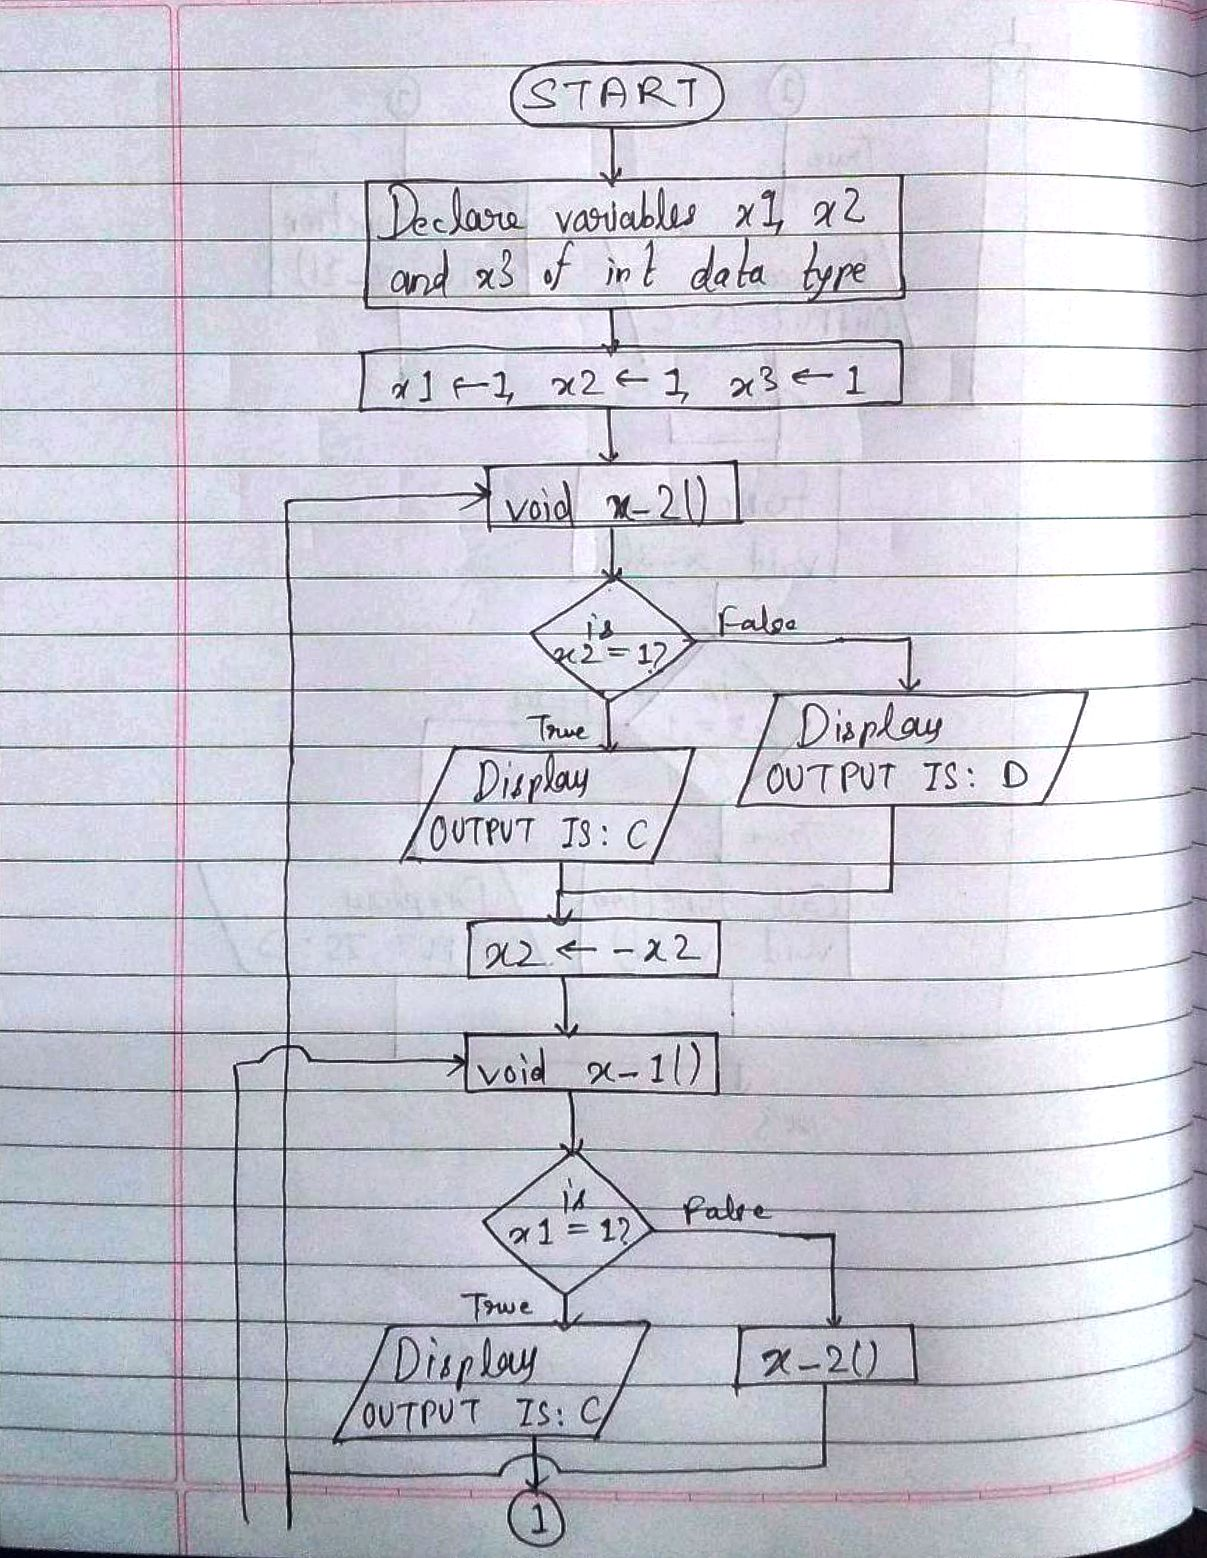 START
Declare variables x1, x2
and x3 of int data type
x1 ← 1, x2 ← 1, x3 ← 1
void x-2()
is
x2 = 1?
False
True
Display
OUTPUT IS: D
Display
OUTPUT IS: C
x2 ← -x2
void x-1()
is
x1 = 1?
False
True
Display
OUTPUT IS: C
x-2()
1